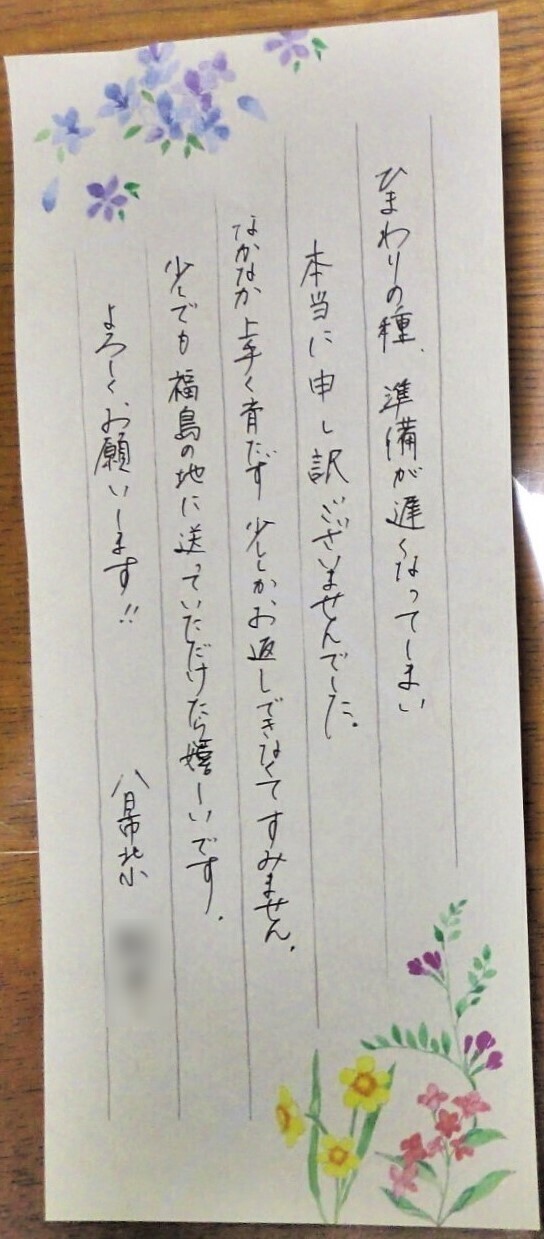 ひまわりの種、準備が遅くなってしまい
本当に申し訳ございませんでした。
なかなか上手く育だず少ししかお返しできなくてすみません。
少しでも福島の地に送っていただけたら嬉しいです。
よろしく、お願いします!!
八日市北小